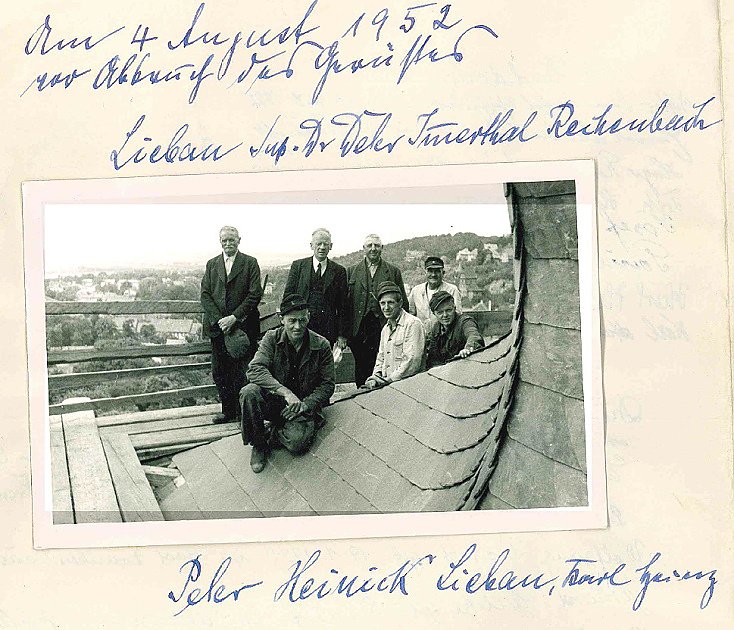 Am 4 August 1952
vor Abbruch des Gerüstes
Liebau Sup. Dr Peter Immerthal Reichenbach
Peter Heinick Liebau, Karl Heinz